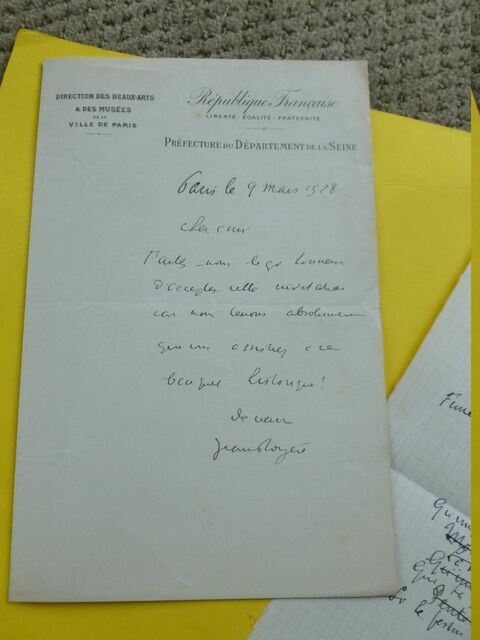 DIRECTION DES BEAUX-ARTS
& DES MUSÉES
DE LA
VILLE DE PARIS
République Française
LIBERTÉ · ÉGALITÉ · FRATERNITÉ
PRÉFECTURE DU DÉPARTEMENT DE LA SEINE
Paris le 9 mars 1928
Cher ami
Faites-nous le honneur
d'accepter cette invitation
car nous tenons absolument
que vous assistiez à ce
banquet historique!
De cœur
Jean Royère